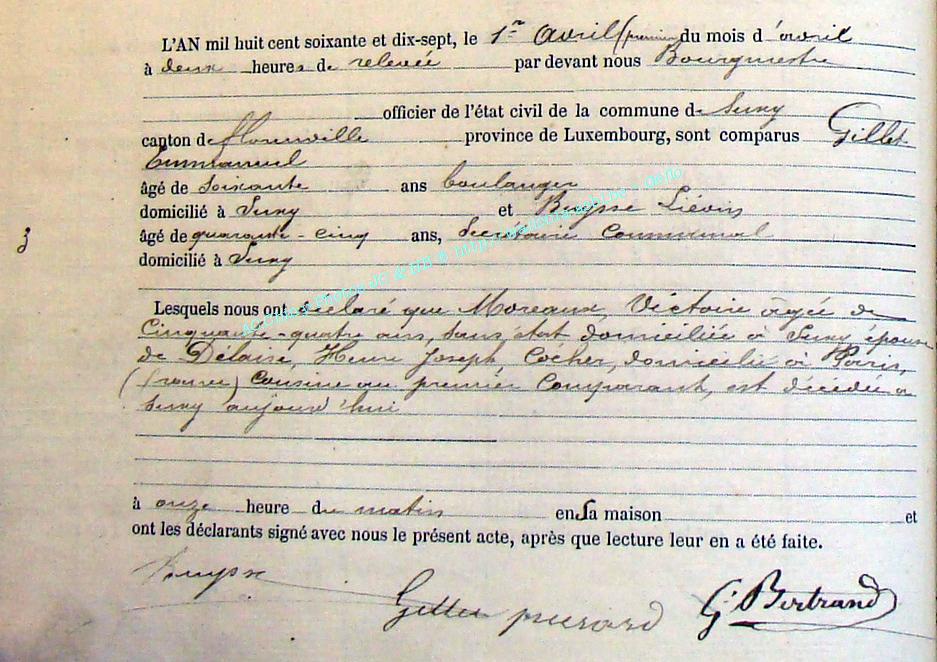 L'AN mil huit cent soixante et dix-sept, le 1er Avril (premier du mois d'avril
à deux heures de relevée par devant nous Bourgmestre
officier de l'état civil de la commune de Suny
canton de florenville province de Luxembourg, sont comparus Gillet
Emmanuel
âgé de soixante ans boulanger
domicilié à Suny et Buysse Liévin
âgé de quarante-cinq ans, Secrétaire Communal
domicilié à Suny
3
Lesquels nous ont déclaré que Moreaux, Victoire âgée de
Cinquante-quatre ans, sans état, domiciliée à Suny, épouse
de Délaise, Henri Joseph Cocher, domicilié à Paris,
(france) Cousine au premier Comparant, est décédée à
Suny aujourd'hui
à onze heure du matin en sa maison et
ont les déclarants signé avec nous le présent acte, après que lecture leur en a été faite.
Buysse
Gillet pierard G. Bertrand